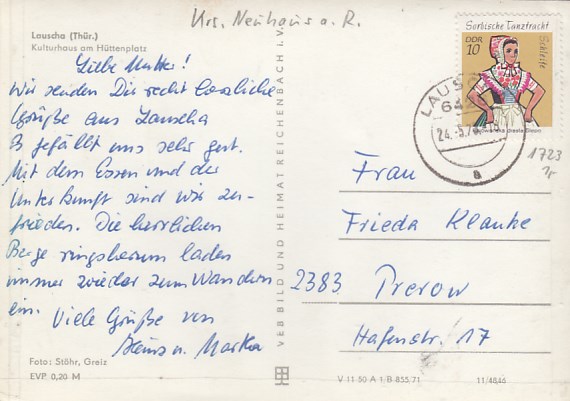 Nrs. Neuhaus a. R.
Lauscha (Thür.)
Kulturhaus am Hüttenplatz
Liebe Mutter!
Wir senden Dir recht herzliche
Grüße aus Lauscha
Es gefällt uns sehr gut.
Mit dem Essen und der
Unterkunft sind wir zu-
frieden. Die herrlichen
Berge ringsherum laden
immer wieder zum Wandern
ein. Viele Grüße von
Heinz u. Marka
Foto: Stöhr, Greiz
EVP 0,20 M
VEB BILD UND HEIMAT REICHENBACH I. V.
Sorbische Tanztracht
DDR
10
Schleife
LAUSCHA
642
24.-5.7
a
1723
Frau
Frieda Klauke
2383 Prerow
Hafenstr. 17
V 11 50 A 1/B 855/71
11/4846